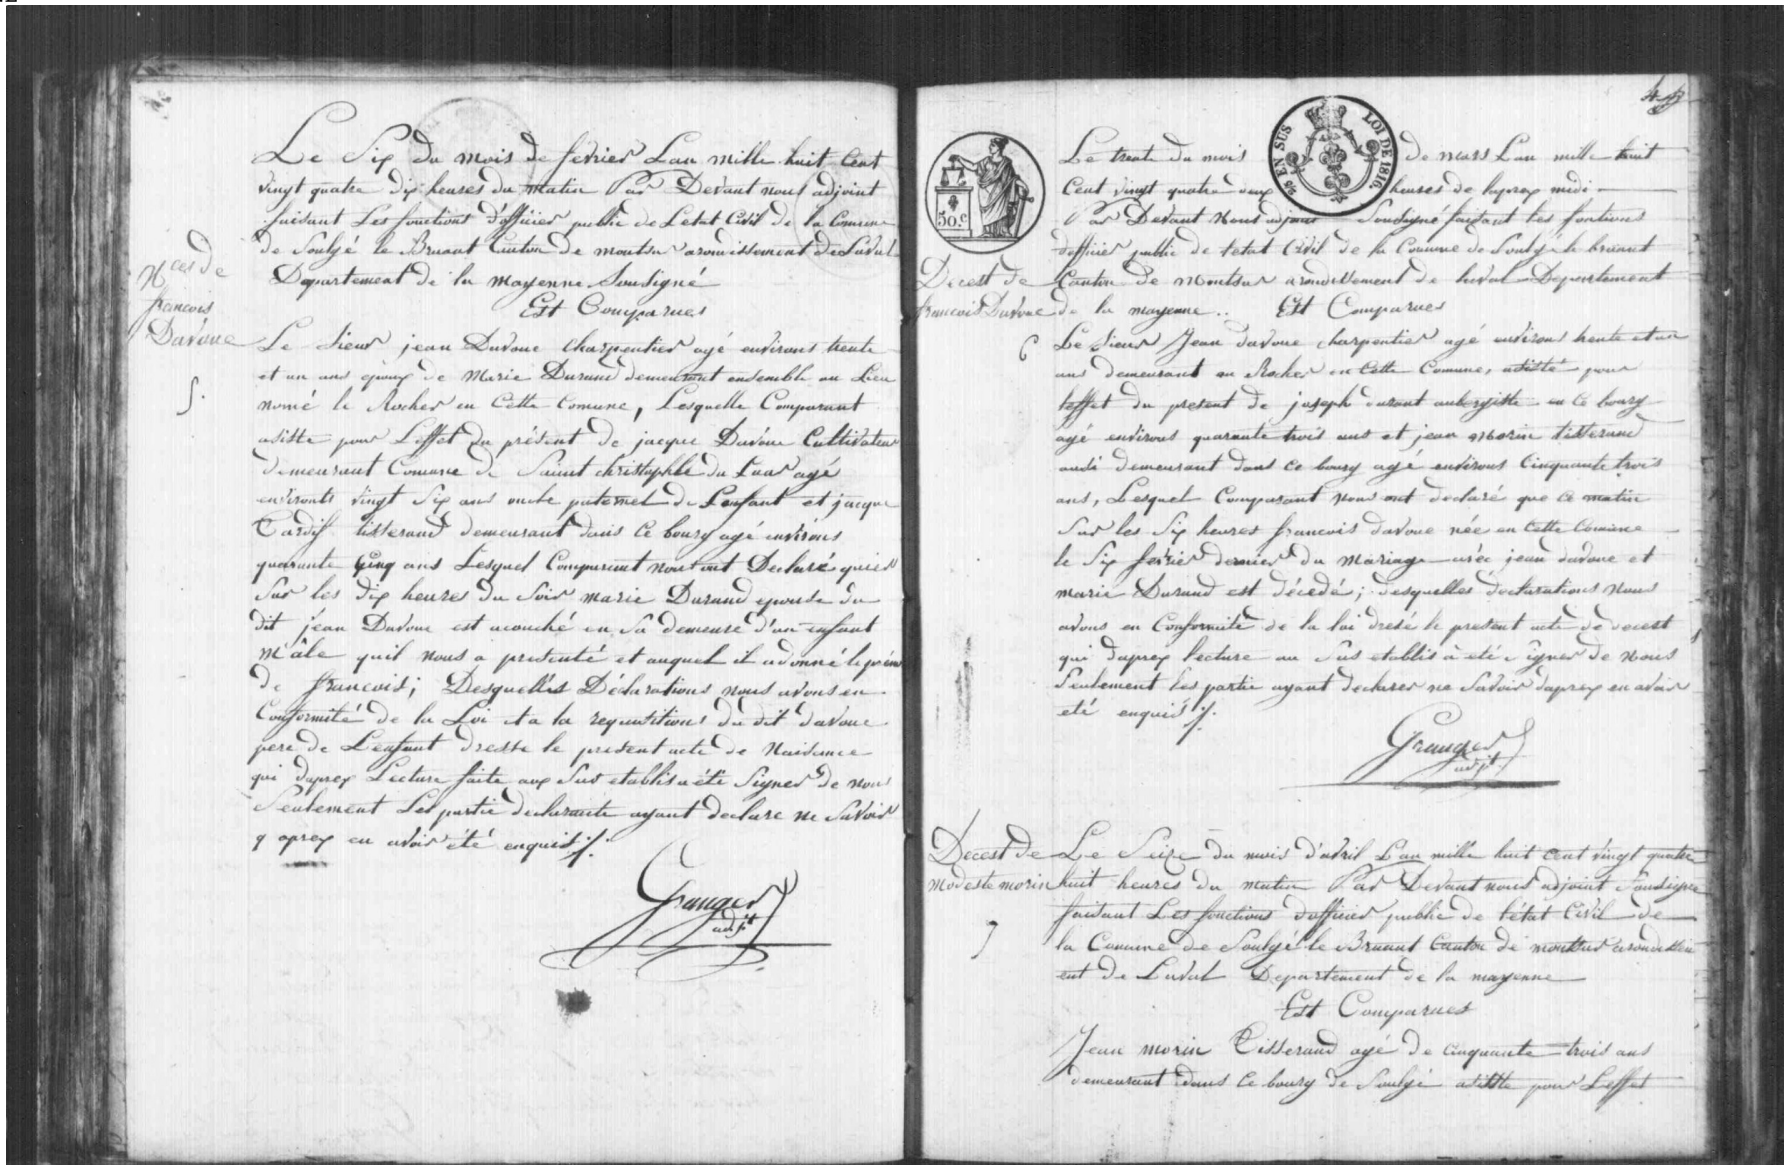 Nces de
francois
Davoue
5.
Le Six du mois de fevrier Lan mille huit Cent
vingt quatre dix heures du matin Par Devant nous adjoint
faisant Les fonctions d'officier public de L'etat Civil de la Comune
de Soulgé le Bruant Canton de montsur arondissement de Laval
Departement de la mayenne Sousigné
Est Comparues
Le Sieur jean Davoue Charpentier agé environs trente
et un ans epoux de Marie Durand demeurant ensemble au Lieu
nomé le Rocher en Cette Comune, Lesquelle Comparant
asiste pour L'effet du présent de jacque Davoue Cultivateur
demeurant Comune de Saint christophle du Luar agé
environts vingt Six ans oncle paternel de L'enfant et jacque
Tardif tisserand demeurant dans Ce bourg agé environs
quarante Cinq ans Lesquel Comparant nous ont Declaré quier
Sur les dix heures du Soir marie Durand epouse du
dit jean Davoue est acouché en Sa demeure d'un enfant
Mâle quil nous a presenté et auquel il a donné le prénom
de francois; Desquelles Déclarations nous avons en
Conformité de la Loi et a la requisitions du dit davoue
pere de L'enfant dresse le present acte de Naisance
qui daprex Lecture faite aux Sus etablis a été Signer de nous
Seulement Les partie declarante ayant declare ne Savoir
q aprex en avoir été enquis ./.
Granger
adjt
49
50.c
25 EN SUS
LOI DE 1816.
Decest de
francois Davoue
6
Le trente du mois de mars Lan mille huit
Cent vingt quatre deux heures de laprex midi
Par Devant Nous adjoint Sousigné faisant les fontions
dofficier public de létat Civil de la Comune de Soulgé le bruant
Canton de Montsur arondissement de laval Departement
de la mayenne .. Est Comparues
Le Sieur Jean davoue charpentier agé environs trente et un
ans demeurant au Rocher en Cette Comune, asisté pour
leffet du present de joseph durant aubergiste en Ce bourg
agé environs quarante trois ans et jean Morin tisserand
ausi demeurant dans Ce bourg agé environs Cinquante trois
ans, Lesquel Comparant Nous ont declaré que Ce matin
Sur les Six heures francois davoue née en Cette Comune
le Six fevrier dernier du Mariage avec jean davoue et
marie Durand est décédé; desquelles declarations Nous
avons en Conformité de la loi dresé le present acte de decest
qui daprex lecture au Sus etablis à été Signer de Nous
Seulement les partie ayant declarer ne Savoir daprex en avoir
eté enquis ./.
Granger
adjt
Decest de
Modeste morin
7
Le Seize du mois d'avril Lan mille huit cent vingt quatre
huit heures du matin Par Devant nous adjoint Sousigne
faisant Les fonctions dofficier public de l'état Civil de
la Comune de Soulgé le Bruant Canton de montsur arondissem
ent de Laval Departement de la mayenne
Est Comparues
Jean morin Tisserand agé de cinquante trois ans
demeurant dans Ce bourg de Soulgé asistte pour L'effet